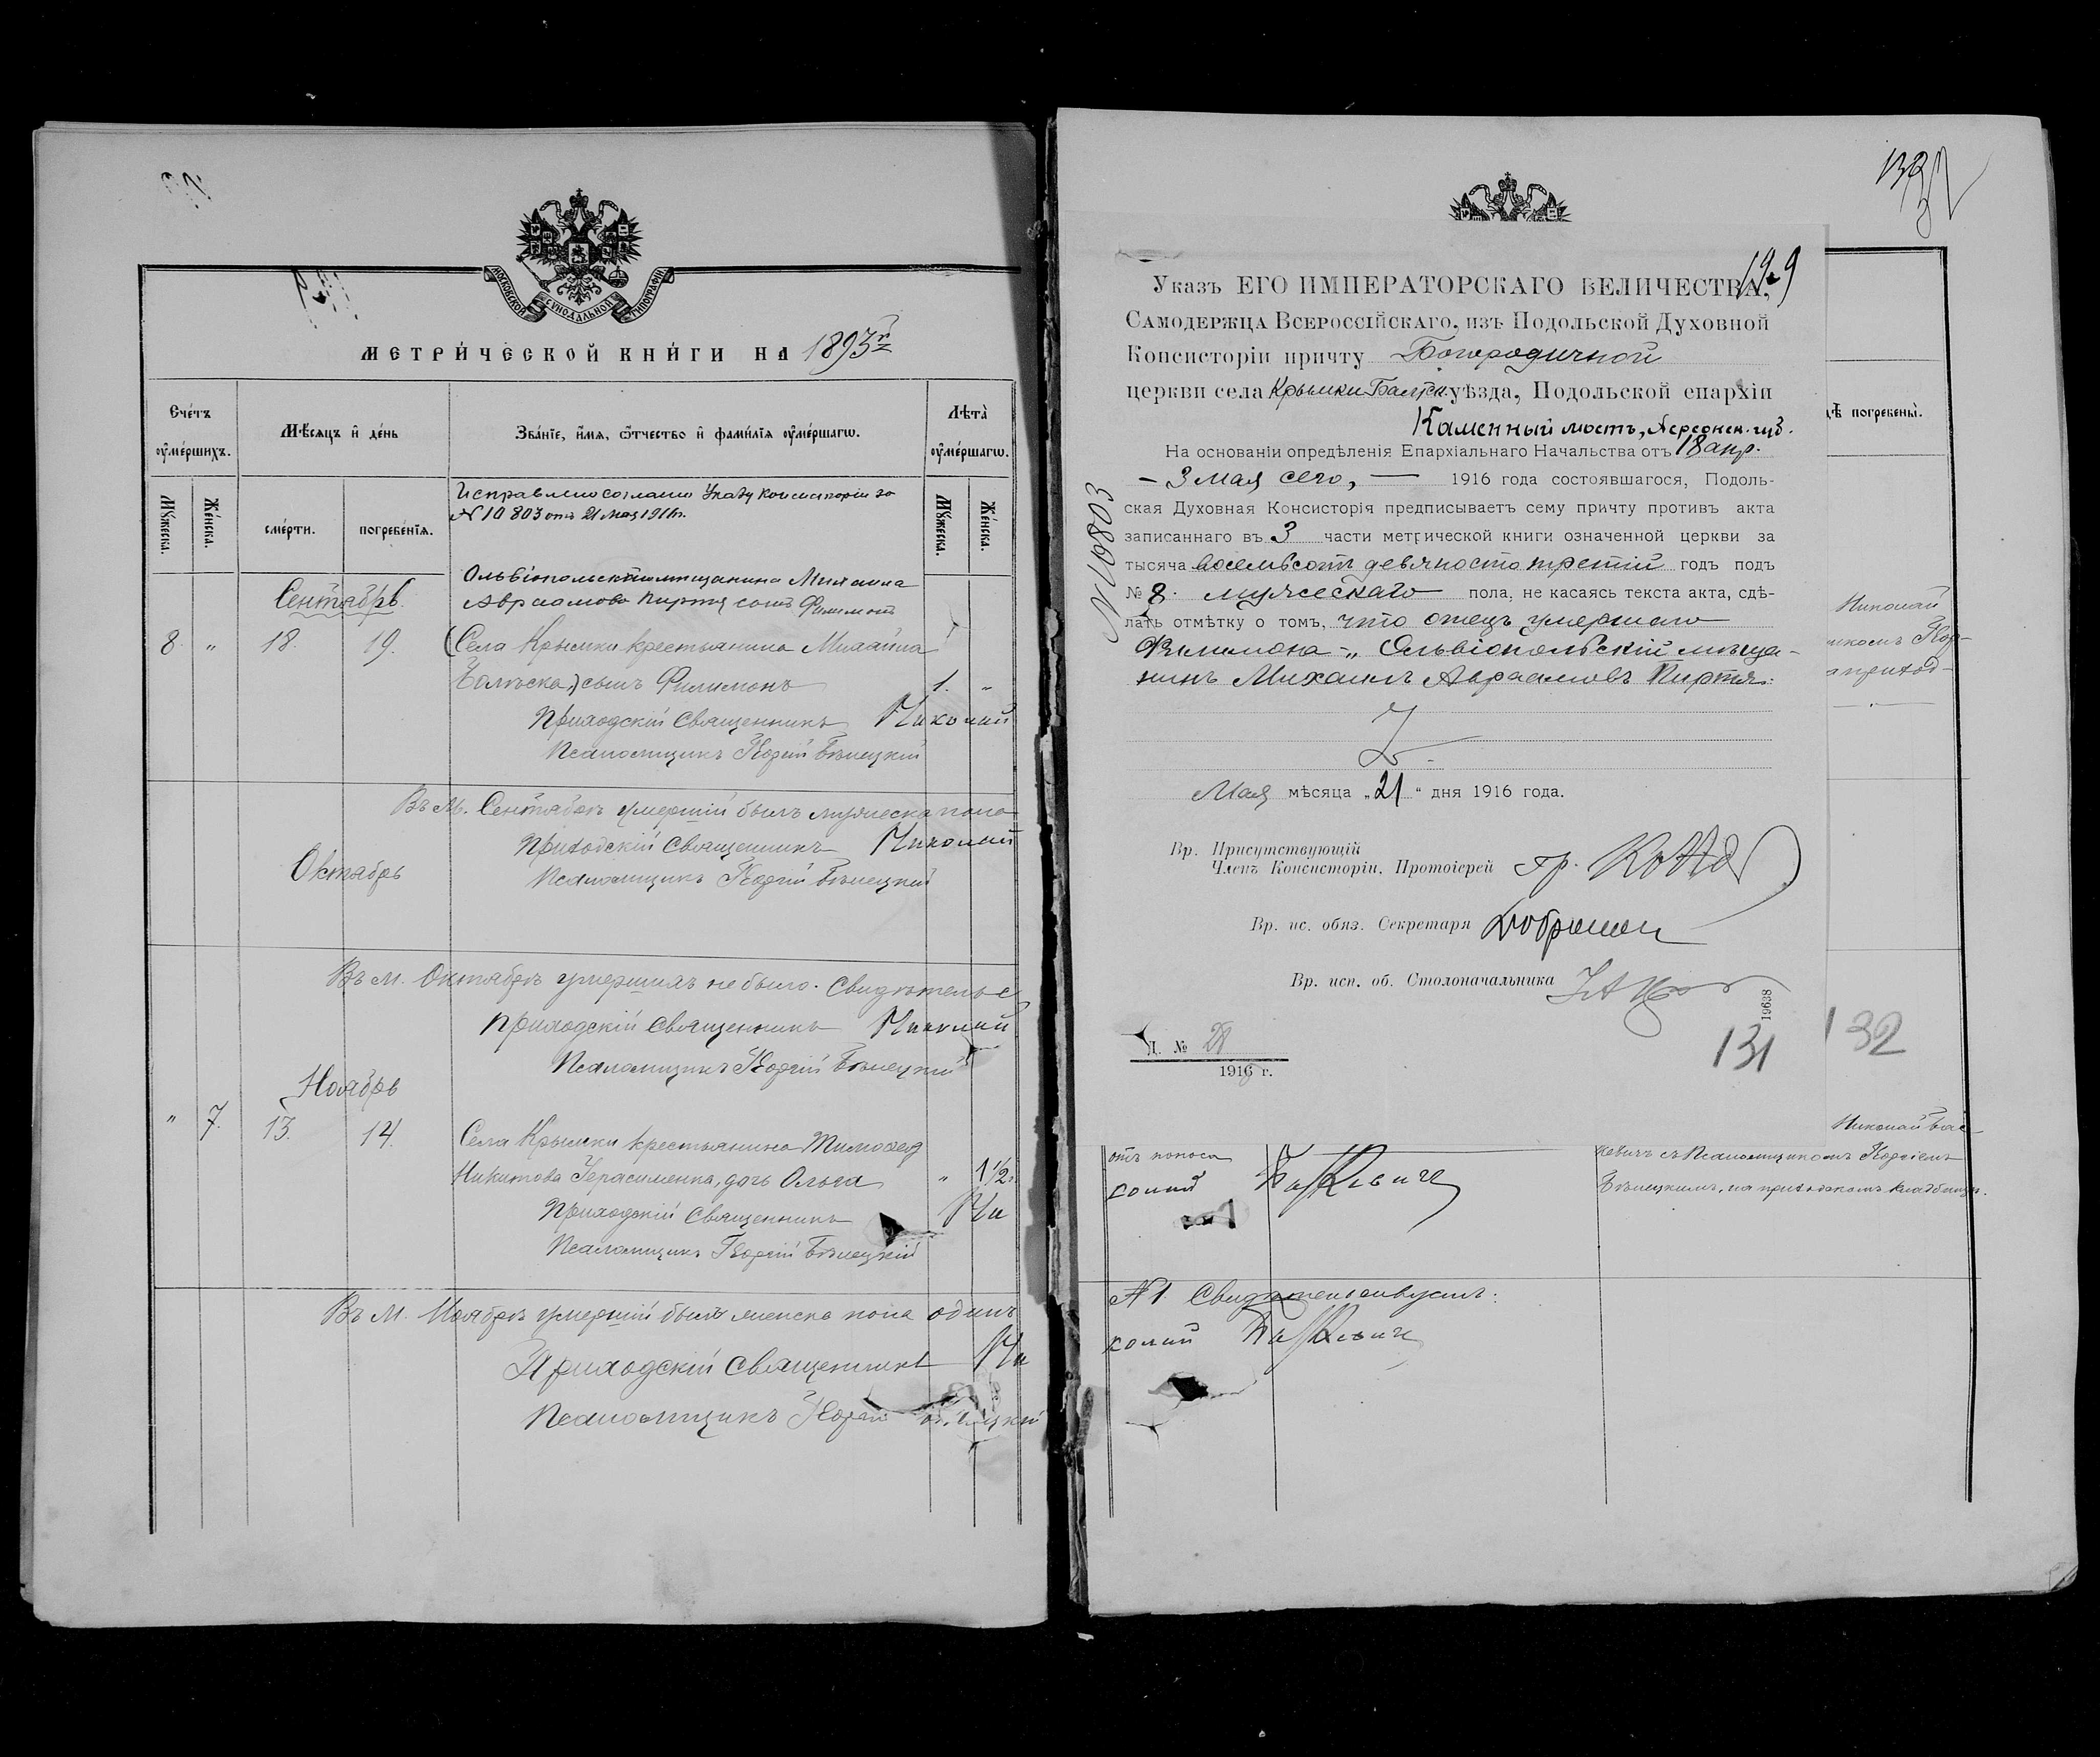 МОСКОВСКОЙ СУНОДАЛЬНОЙ ТИПОГРАФІИ
МЕТРИЧЕСКОЙ КНИГИ НА 1893 г.
Счетъ оумершихъ.
Мѣсяцъ и день
Званіе, имя, отчество и фамилія оумершагω.
Лѣта оумершагω.
Мужеска.
Женска.
смерти.
погребенія.
Мужеска.
Женска.
Исправлено согласно Указу Консисторіи за
№ 10803 отъ 21 мая 1916 г.
Сентябрь.
Ольвіопольскаго мѣщанина Михаила
Авраамова Пиртя сынъ Филимонъ
8. " 18. 19. (Села Крымки крестьянина Михаила
сынъ Филимонъ 1. "
Приходскій Священникъ Николай
Псаломщикъ Георгій Бѣлецкій
Въ М. Сентябрѣ умершій былъ мужеска пола
Приходскій Священникъ Николай
Октябрь
Псаломщикъ Георгій Бѣлецкій
Въ М. Октябрѣ умершихъ не было. Свидѣтельс
Приходскій Священникъ Николай
Псаломщикъ Георгій Бѣлецкій
Ноябрь
" 7. 13. 14. Села Крымки крестьянина Тимофея
Никитова Герасименка, дочь Ольга " 1 1/2
Приходскій Священникъ Ни
Псаломщикъ Георгій Бѣлецкій
Въ М. Ноябрѣ умершій былъ женска пола одинъ
Приходскій Священникъ Ни
Псаломщикъ Георгій
Указъ ЕГО ИМПЕРАТОРСКАГО ВЕЛИЧЕСТВА,
Самодержца Всероссійскаго, изъ Подольской Духовной
Консисторіи причту Богородичной
церкви села Крымки Балтск. уѣзда, Подольской епархіи
Каменный мостъ, Херсонск. губ.
На основаніи опредѣленія Епархіальнаго Начальства отъ 18 апр.
– 3 мая сего, — 1916 года состоявшагося, Подоль-
ская Духовная Консисторія предписываетъ сему причту противъ акта
записаннаго въ 3 части метрической книги означенной церкви за
тысяча восемьсотъ девяносто третій годъ подъ
№ 8. мужескаго пола, не касаясь текста акта, сдѣ-
лать отмѣтку о томъ, что отецъ умершаго
Филимона – „Ольвіопольскій мѣща-
нинъ Михаилъ Авраамовъ Пиртя.
№ 10803
Мая мѣсяца „21" дня 1916 года.
Вр. Присутствующій
Членъ Консисторіи, Протоіерей
Вр. ис. обяз. Секретаря
Вр. исп. об. Столоначальника
19638
Д. № 28
1916 г.
131
132
дѣ погребены.
Николай
приход-
Николай Бас-
отъ поноса
колай
кевичъ съ Псаломщикомъ Георгіемъ
Бѣлецкимъ, на приходскомъ кладбищѣ.
№ 1. Свидѣтельствуемъ:
колай